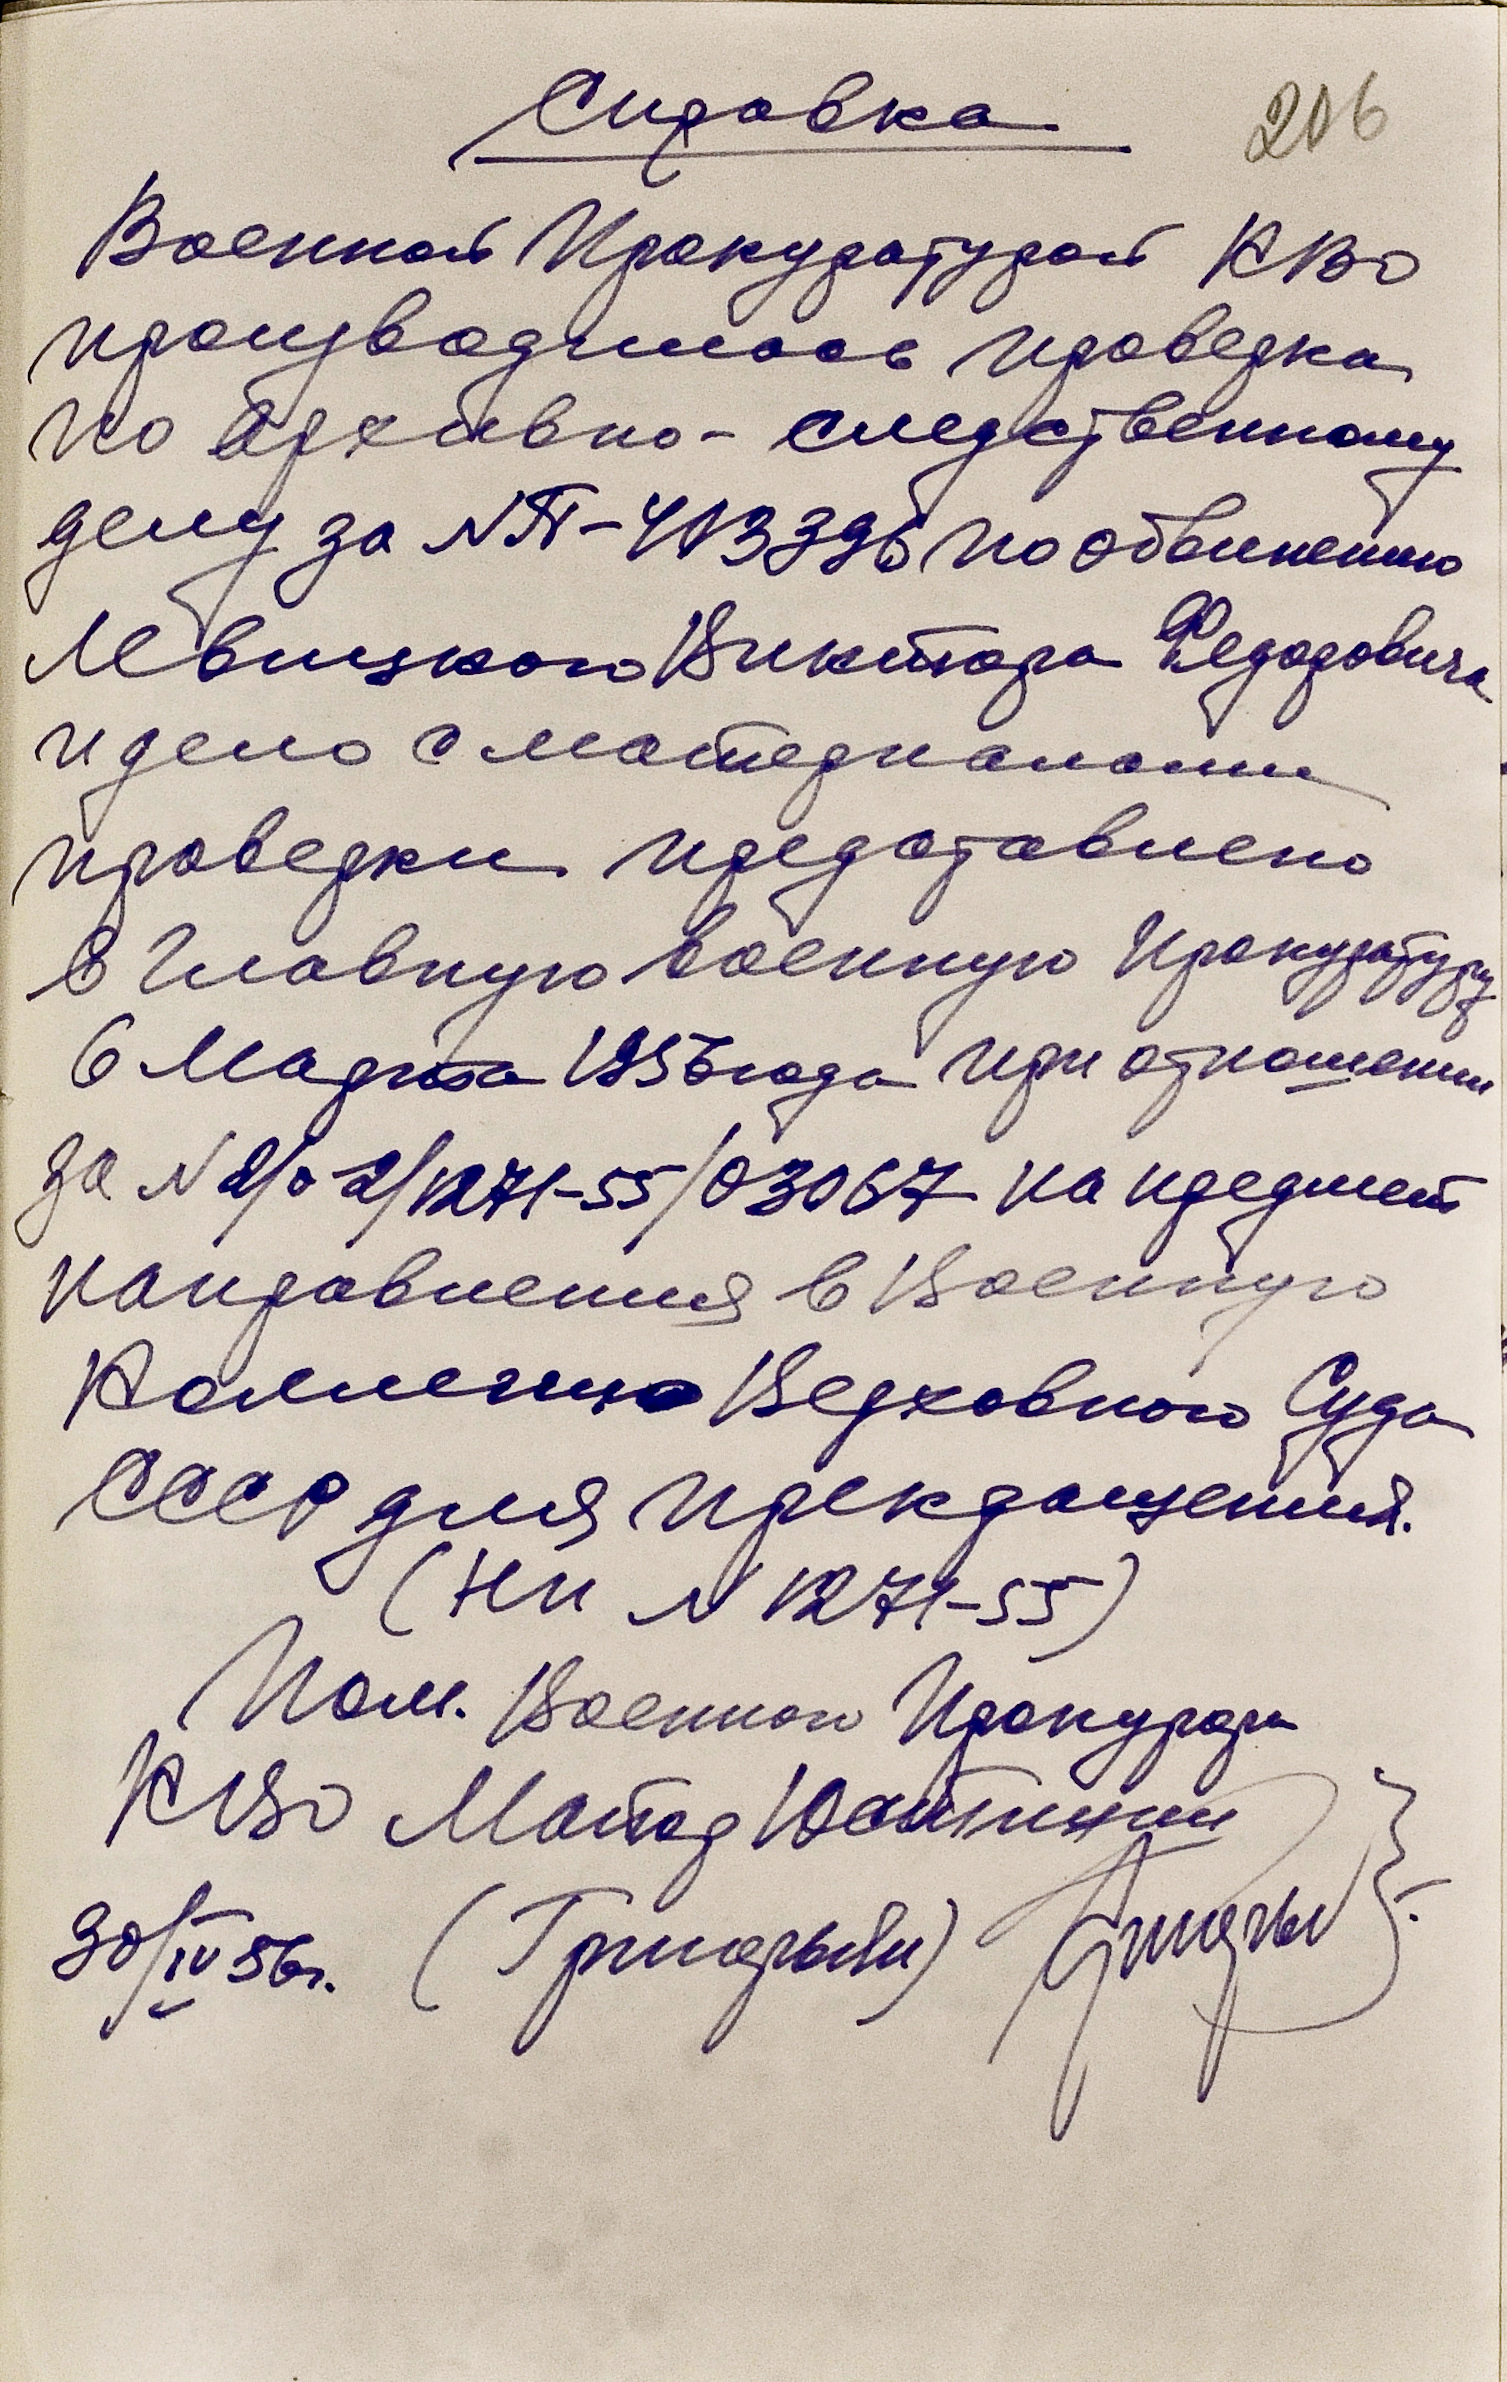 Справка
206
Военной Прокуратурой КВО
производилась проверка
по архивно-следственному
делу за №П-403396 по обвинению
Левицкого Виктора Федоровича
и дело с материалами
проверки представлено
в Главную военную Прокуратуру
6 Марта 1956 года при отношении
за N 2/0-2/1271-55/03067 на предмет
направления в Военную
Коллегию Верховного Суда
СССР для прекращения.
(НП N 1271-55)
Пом. Военного Прокурора
КВО Майор Юстиции
30/IV 56г. (Григорьян)